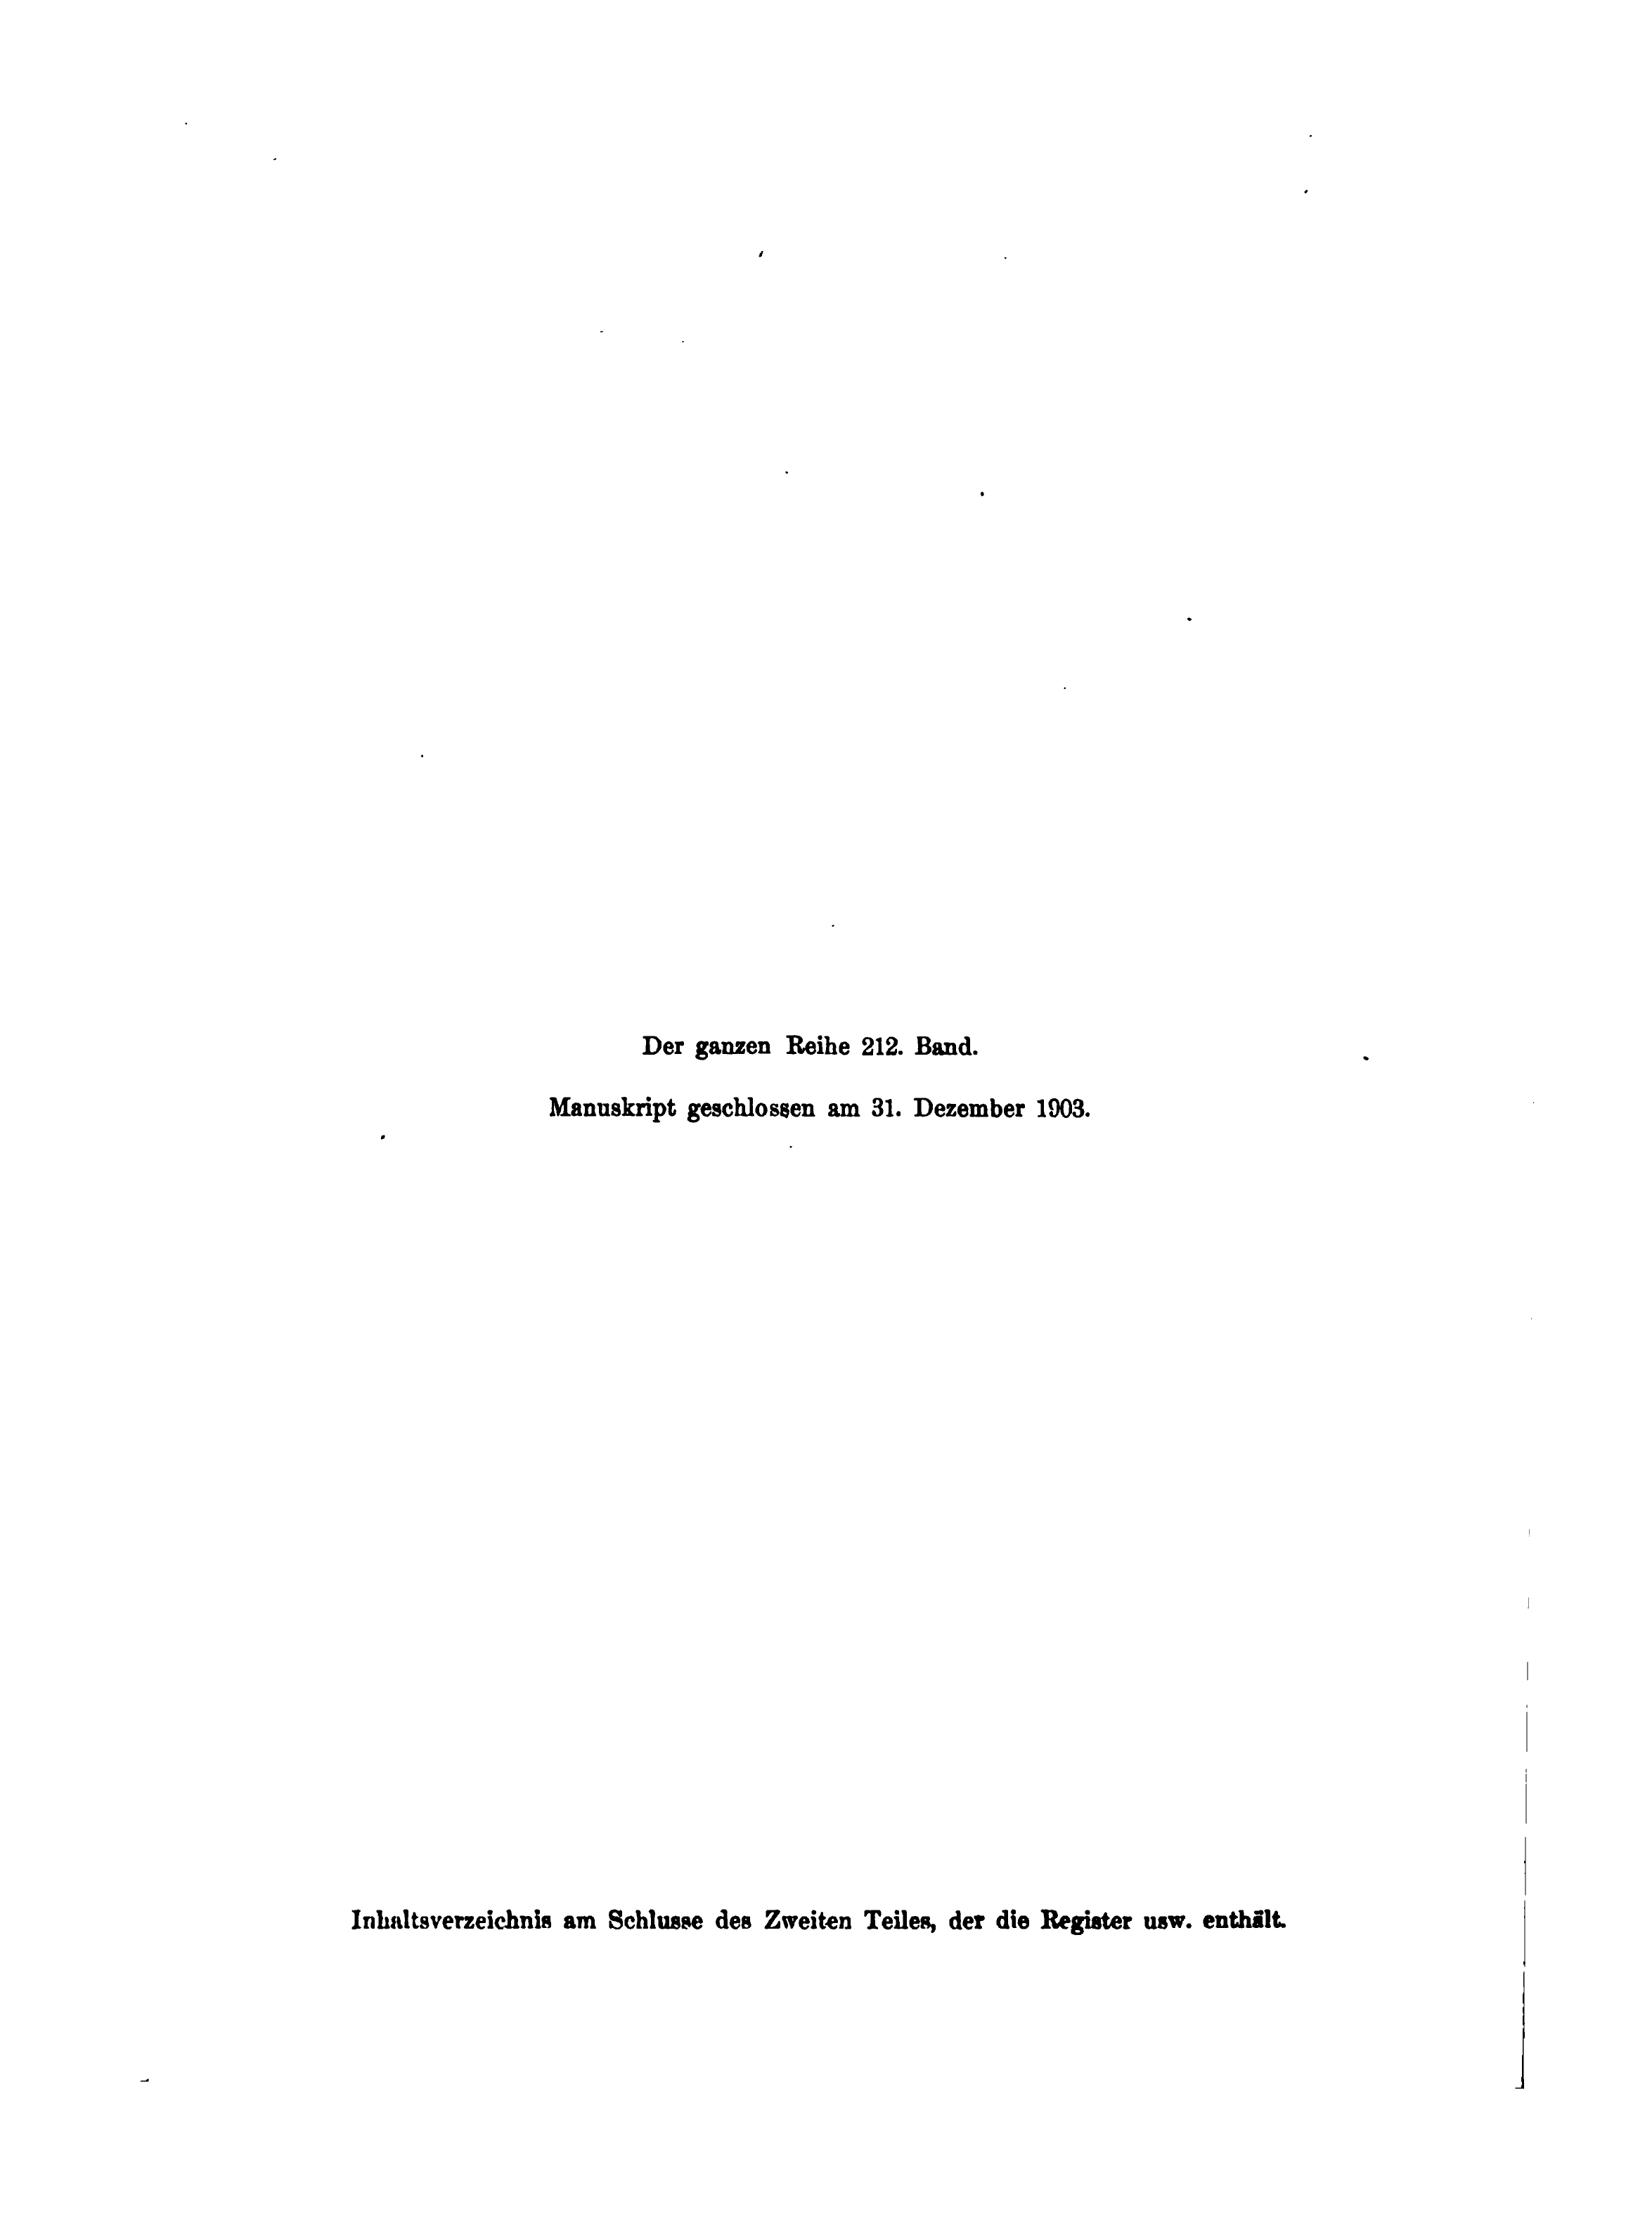 Der ganzen Reihe 212. Band.
Manuskript geschlossen am 31. Dezember 1903.
Inhaltsverzeichnis am Schlusse des Zweiten Teiles, der die Register usw. enthält.